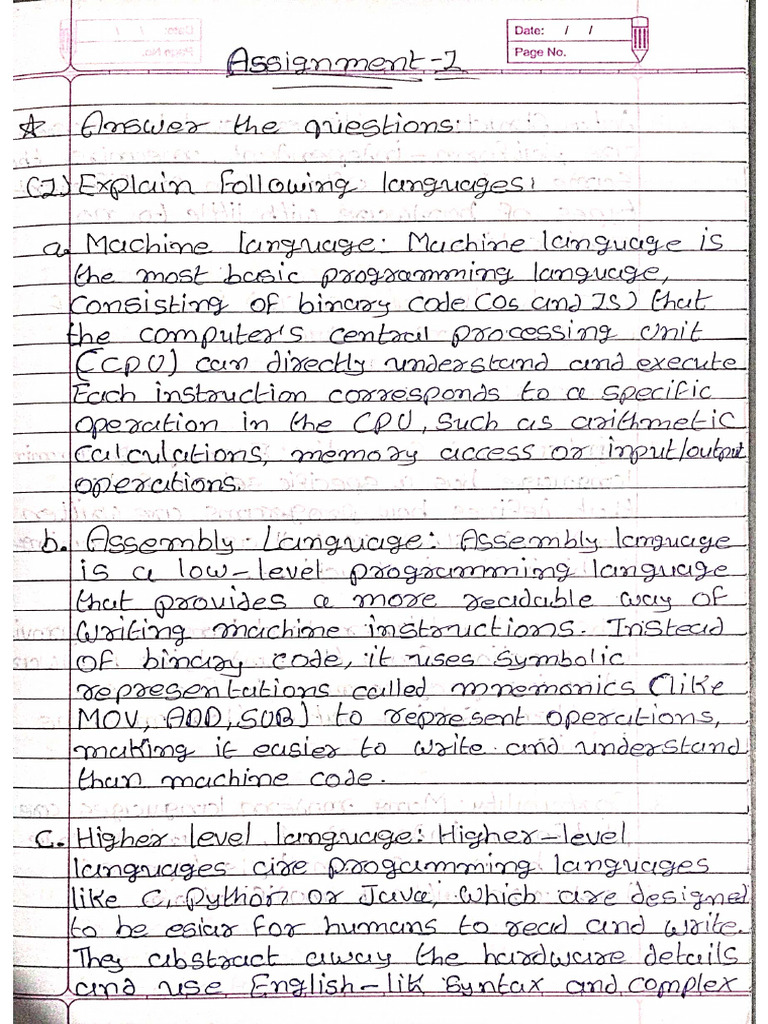 Date: / /
Page No.
Assignment-1
☆ Answer the questions:
(1) Explain following languages:
a. Machine language: Machine language is
the most basic programming language,
consisting of binary code (0s and 1s) that
the computer's central processing unit
(CPU) can directly understand and execute
Each instruction corresponds to a specific
operation in the CPU, such as arithmetic
calculations, memory access or input/output
operations.
b. Assembly Language: Assembly language
is a low-level programming language
that provides a more readable way of
writing machine instructions. Instead
of binary code, it uses symbolic
representations called mnemonics (like
MOV, ADD, SUB) to represent operations,
making it easier to write and understand
than machine code.
c. Higher level language: Higher-level
languages are progamming languages
like C, Python or Java, which are designed
to be esiar for humans to read and write.
They abstract away the hardware details
and use English-lik syntax and complex